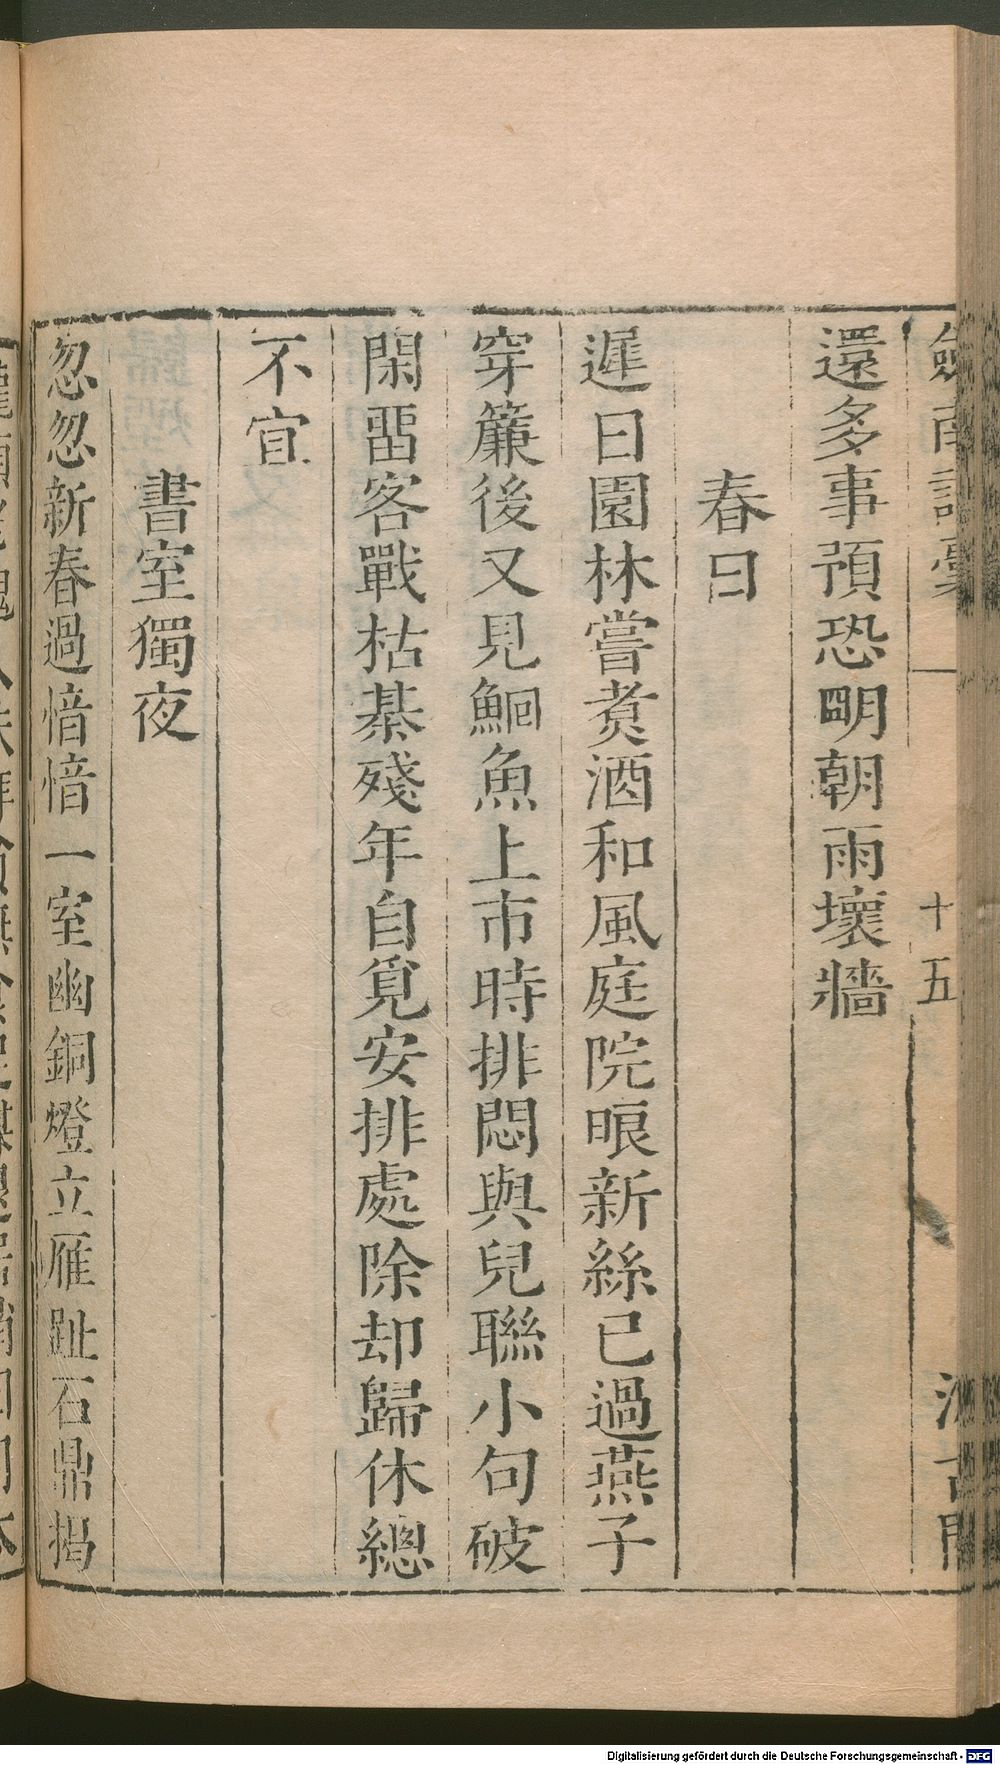 劍南詩稾 十五 汲古閣
還多事預恐明朝雨壞牆
春日
遲日園林嘗煑酒和風庭院㫰新絲已過燕子
穿簾後又見鮰魚上市時排悶與兒聯小句破
閑畱客戰枯棊殘年自覓安排處除却歸休總
不宜
書室獨夜
忽忽新春過愔愔一室幽銅燈立雁趾石鼎揭
Digitalisierung gefördert durch die Deutsche Forschungsgemeinschaft - DFG